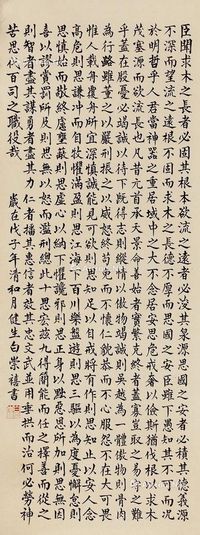 臣聞求木之長者必固其根本欲流之遠者必浚其泉源思國之安者必積其德義源
不深而望流之遠根不固而求木之長德不厚而思國之安臣雖下愚知其不可而況
於明哲乎人君當神器之重居域中之大不念居安思危戒奢以儉斯猶伐根以求木
茂塞源而欲流長也凡昔元首承天景命善始者實繁克終者蓋寡豈取之易守之難
乎蓋在殷憂必竭誠以待下既得志則縱情以傲物竭誠則吳越為一體傲物則骨肉
為行路雖董之以嚴刑振之以威怒終苟免而不懷仁貌恭而不心服怨不在大可畏
惟人載舟覆舟所宜深慎誠能見可欲則思知足以自戒將有作則思知止以安人念
高危則思謙沖而自牧懼滿盈則思江海下百川樂盤遊則思三驅以為度憂懈怠則
思慎始而敬終慮壅蔽則思虛心以納下懼讒邪則思正身以黜惡恩所加則思無因
喜以謬賞罰所及則思無以怒而濫刑總此十思宏茲九得簡能而任之擇善而從之
則智者盡其謀勇者盡其力仁者播其惠信者效其忠文武並用垂拱而治何必勞神
苦思代百司之職役哉 歲在戊子年清和月健生白崇禧書